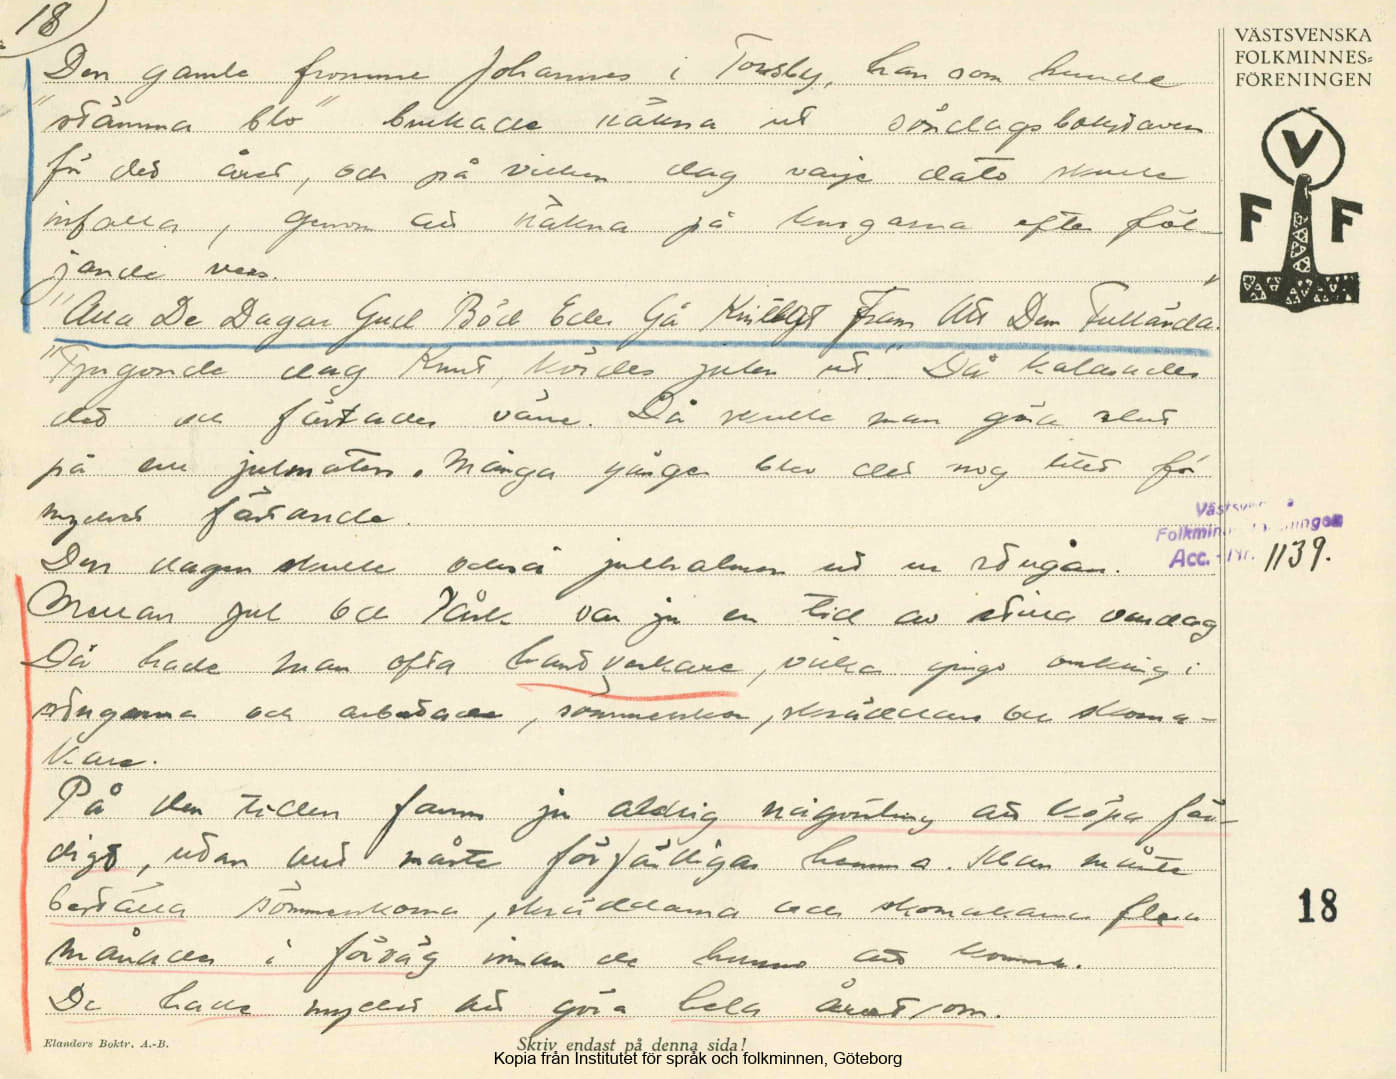 18
VÄSTSVENSKA
FOLKMINNES=
FÖRENINGEN
V
F F
Den gamle fromme Johannes i Torsby, han som kunde
"stämma blo" brukade räkna ut söndagsbokstaven
för det året, och på vilken dag varje dato skulle
infalla, genom att räkna på knogarna efter föl-
jande vers.
"Alla De Dagar Gud Böd Eder Gå Fram Att Den Fullända."
"Tjugonde dag Knut, kördes julen ut." Då kalasades
det och festades värre. Då skulle man göra slut
på all julmaten. Många gånger blev det nog litet för
mycket festande.
Den dagen skulle också julhalmen ut ur stugan.
Mellan jul och Påsk var ju en tid av stilla vardag
Då hade man ofta hantverkare, vilka gingo omkring i
stugorna och arbetade, sömmerskor, skräddare och skoma-
kare.
På den tiden fanns ju aldrig någonting att köpa fär-
digt, utan allt måste förfärdigas hemma. Man måste
beställa sömmerskorna, skräddarna och skomakarna flera
månader i förväg innan de hunno att komma.
De hade mycket att göra hela året om.
Acc.-Nr. 1139.
18
Elanders Boktr. A.-B.
Skriv endast på denna sida!
Kopia från Institutet för språk och folkminnen, Göteborg